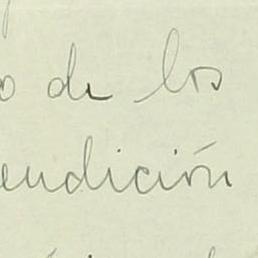 o de los
endición